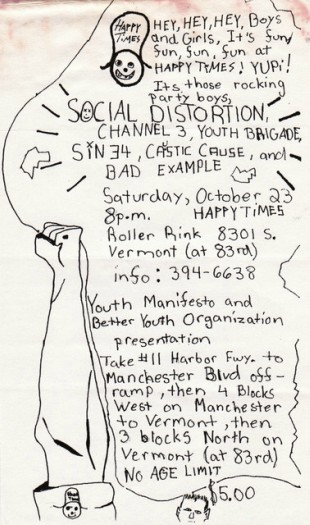 HAPPY
TIMES
HEY, HEY, HEY, Boys
and Girls, It's fun,
fun, fun, fun at
HAPPY TIMES! YUPi!
Its those rocking
party boys,
SOCIAL DISTORTION,
CHANNEL 3, YOUTH BRIGADE,
SIN 34, CASTIC CAUSE, and
BAD EXAMPLE
Saturday, October 23
8p.m. HAPPY TIMES
Roller Rink 8301 S.
Vermont (at 83rd)
info: 394-6638
Youth Manifesto and
Better Youth Organization
presentation
Take #11 Harbor Fwy. to
Manchester Blvd off-
ramp, then 4 Blocks
West on Manchester
to Vermont, then
3 blocks North on
Vermont (at 83rd)
NO AGE LIMIT
$5.00